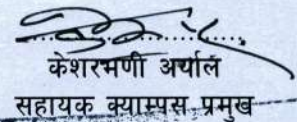 केशरमणी अर्याल
सहायक क्याम्पस प्रमुख